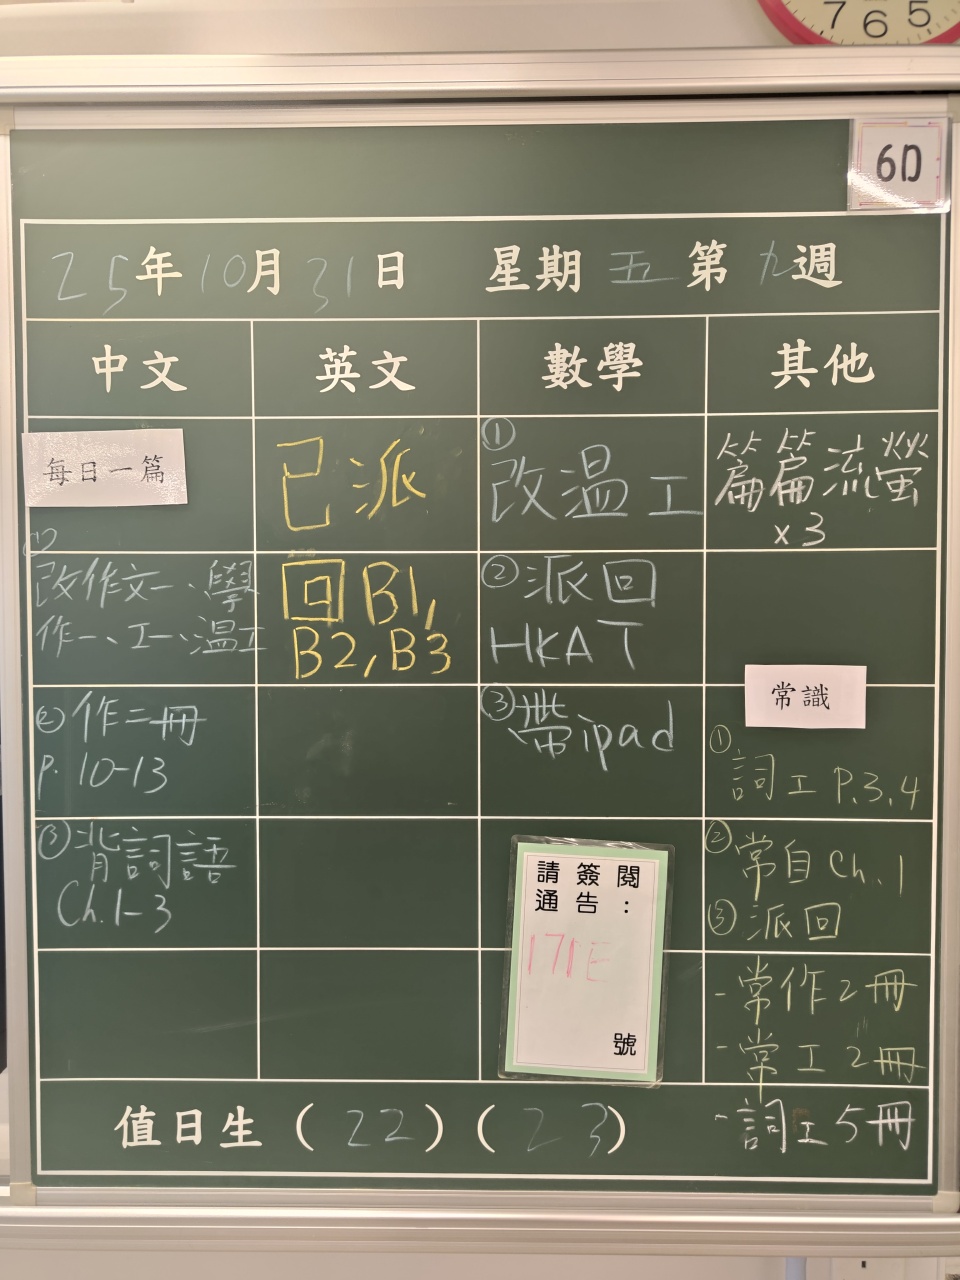 7 6 5
6D
25年10月31日 星期五 第九週
中文
英文
數學
其他
每日一篇
①
改作文一、學
作一、工一、溫工
②作二冊
P. 10-13
③背詞語
Ch.1-3
已派
回B1,
B2,B3
①
改溫工
②派回
HKAT
③帶ipad
請簽閱
通告:
171E
號
篇篇流螢
x3
常識
①
詞工 P.3,4
②
常自 Ch.1
③派回
-常作2冊
-常工2冊
-詞工5冊
值日生(22)(23)